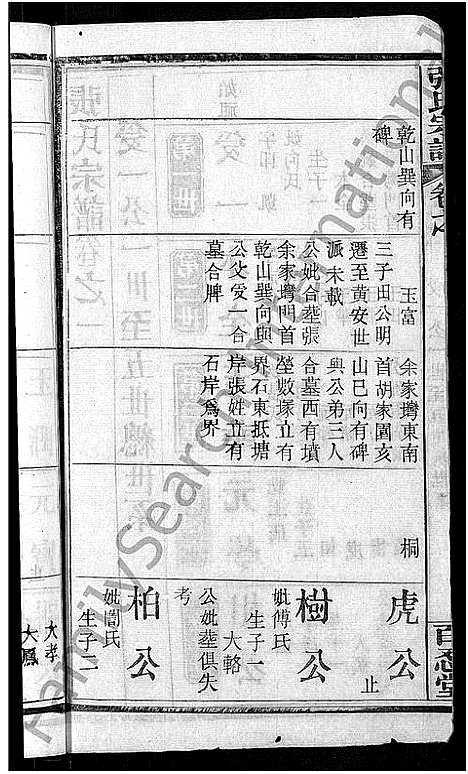 張氏宗譜
卷
百忍堂
乾山巽向有
碑
玉富
三子田公明
遷至黄安世
派未載
公妣合塟張
余家塆門首
乾山巽向與
公父受一合
墓合牌
余家塆東南
首胡家園亥
山巳向有碑
與公弟三人
合墓西有墳
塋數塚立有
界石東抵塘
岸張姓立有
石岸爲界
桐
虎公
止
樹公
妣傅氏
生子一
大輅
公妣塟俱失
考
柏公
妣闇氏
生子一
大孝
大鳳
FamilySearch International